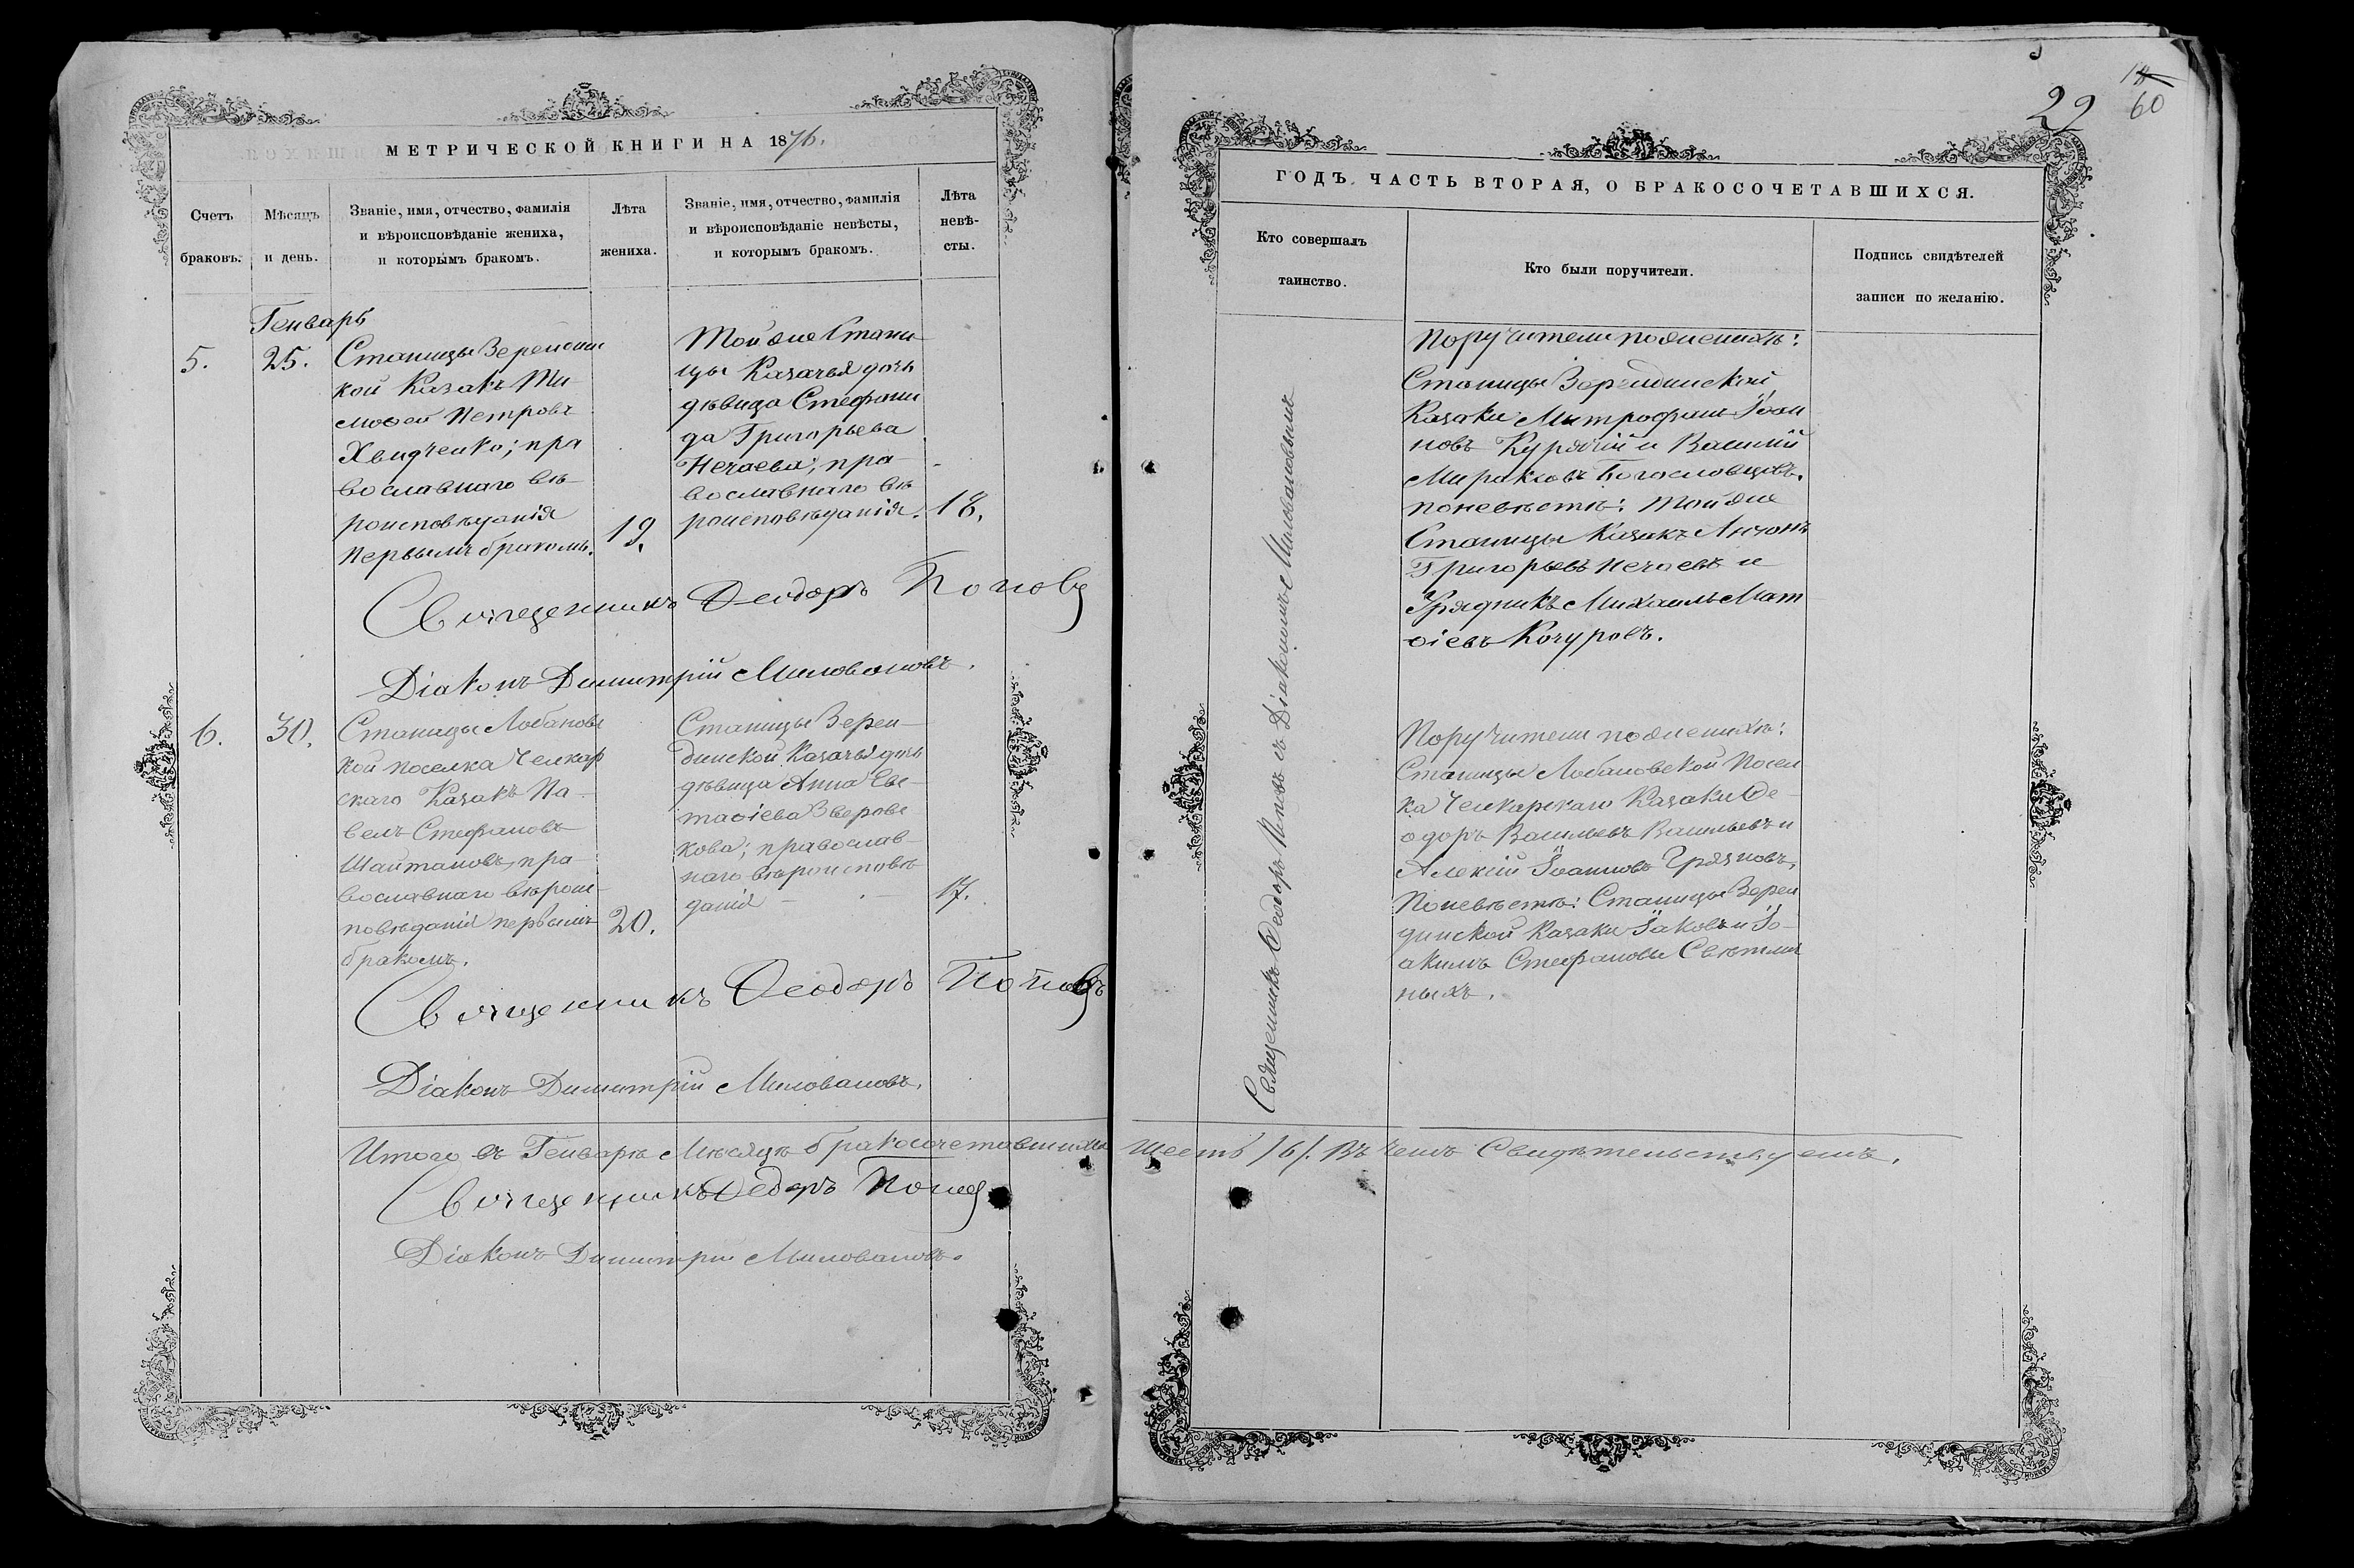 МЕТРИЧЕСКОЙ КНИГИ НА 1876.
Счетъ браковъ.
Мѣсяцъ и день.
Званіе, имя, отчество, фамилія
и вѣроисповѣданіе жениха,
и которымъ бракомъ.
Лѣта
жениха.
Званіе, имя, отчество, фамилія
и вѣроисповѣданіе невѣсты,
и которымъ бракомъ.
Лѣта
невѣ-
сты.
Генварь
5.
25.
Станицы Зерендин
кой Казакъ Ти-
моѳей Петровъ
Хвидченко; пра
вославнаго вѣ-
роисповѣданія
первымъ бракомъ.
19.
Той же Стани
цы Казачья дочь
дѣвица Стефани
да Григорьева
Нечаева; пра-
вославнаго вѣ
роисповѣданія.
18.
Священникъ Ѳеодоръ Поповъ
Діаконъ Димитрій Миловановъ.
6.
30.
Станицы Лобановс
кой поселка Челкар
скаго Казакъ Па-
велъ Стефановъ
Шайтановъ, пра-
вославнаго вѣроис-
повѣданія первымъ
бракомъ.
20.
Станицы Зерен-
динской Казачья дочь
дѣвица Анна Евс-
таѳіева Звѣровс
кова; православ-
наго вѣроисповѣ
данія
17.
Священникъ Ѳеодоръ Поповъ
Діаконъ Димитрій Миловановъ.
Итого въ Генварѣ мѣсяцѣ бракосочетавшихся
Священникъ Ѳеодоръ Поповъ
Діаконъ Димитрій Миловановъ.
22
60
ГОДЪ, ЧАСТЬ ВТОРАЯ, О БРАКОСОЧЕТАВШИХСЯ.
Кто совершалъ
таинство.
Кто были поручители.
Подпись свидѣтелей
записи по желанію.
Священникъ Ѳеодоръ Поповъ съ Діакономъ Миловановымъ
Поручители по женихѣ:
Станицы Зерендинской
Казаки Митрофанъ Іоан
новъ Курячій и Василій
Богословцевъ.
по невѣстѣ: той же
Станицы Казакъ Антонъ
Григорьевъ Нечаевъ и
Урядникъ Михаилъ Мат
ѳіевъ Кочуровъ.
Поручители по женихѣ:
Станицы Лобановской Посел
ка Челкарскаго Казаки Ѳе-
одоръ Васильевъ Васильевъ и
Алексій Іоанновъ Грязновъ,
По невѣстѣ: Станицы Зерен
динской Казаки Іаковъ и Іо-
акимъ Стефановы Свѣтлич
ныхъ.
шесть /6/. Въ чемъ Свидѣтельствуемъ.